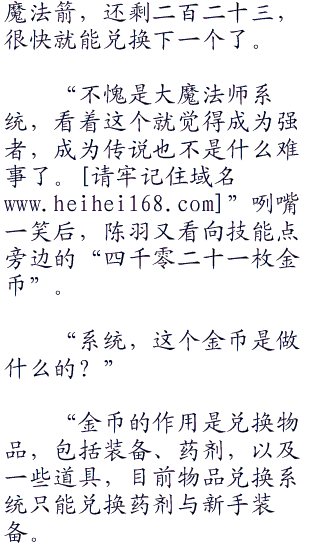 魔法箭，还剩二百二十三，
很快就能兑换下一个了。
“不愧是大魔法师系
统，看着这个就觉得成为强
者，成为传说也不是什么难
事了。[请牢记住域名
www.heihei168.com]”咧嘴
一笑后，陈羽又看向技能点
旁边的“四千零二十一枚金
币”。
“系统，这个金币是做
什么的？”
“金币的作用是兑换物
品，包括装备、药剂，以及
一些道具，目前物品兑换系
统只能兑换药剂与新手装
备。